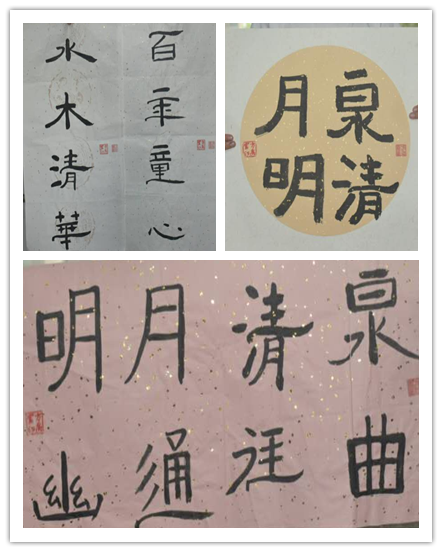 百年童心
水木清華
泉清
月明
泉清月明
曲径通幽